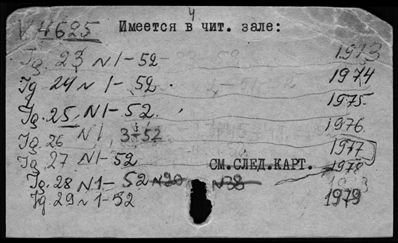 4
V 4625 Имеется в чит. зале:
Jg. 23 N 1-52 1973
Jg 24 N 1-52 1974
Jg. 25, N 1-52. 1975
Jg. 26 N 1, 3-52 1976
Jg. 27 N 1-52 1977
СМ.СЛЕД.КАРТ. 1978
Jg. 28 N 1-52 N 20 N 38
Jg. 29 N 1-52 1979